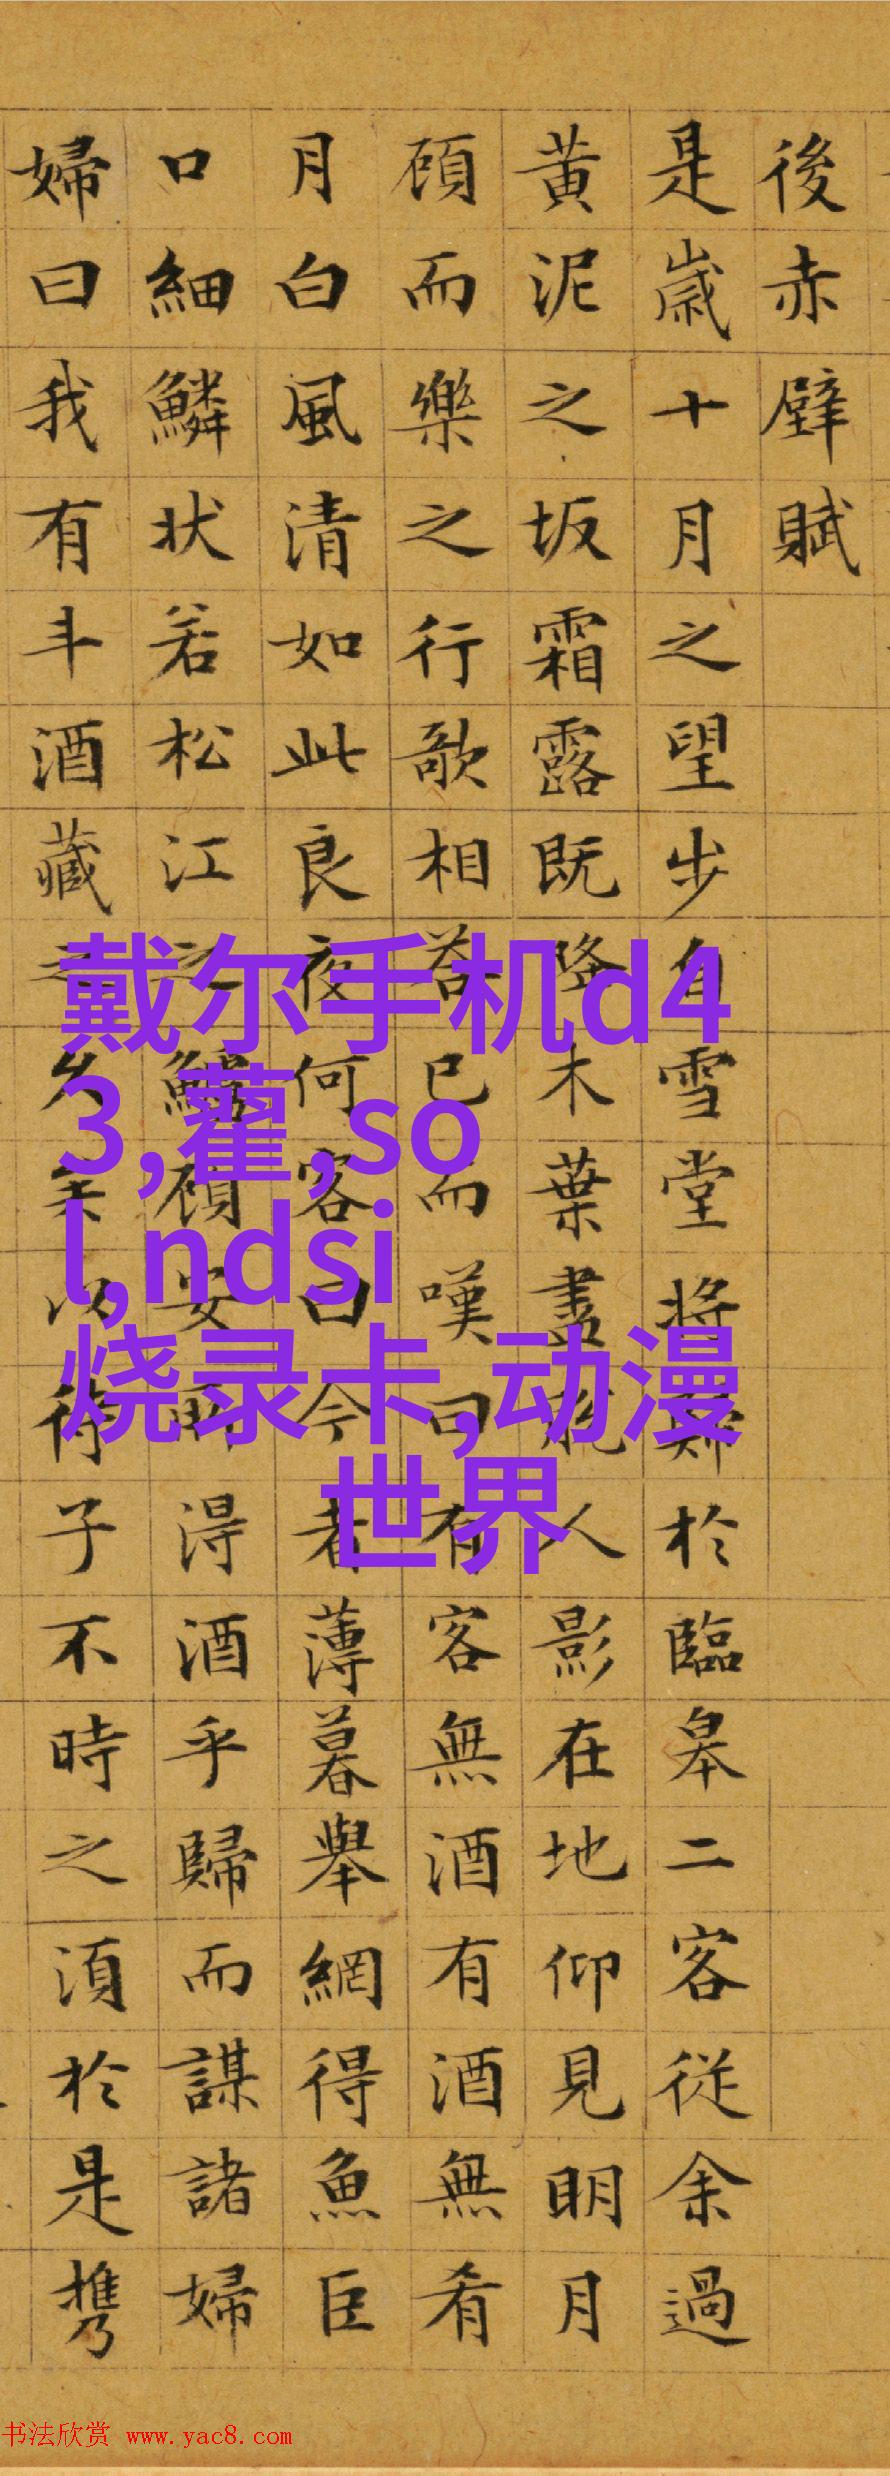 後赤壁賦
是歲十月之望步自雪堂將歸於臨皋二客從余過
黃泥之坂霜露既降木葉盡脫人影在地仰見明月
顧而樂之行歌相荅已而嘆曰有客無酒有酒無肴
月白風清如此良夜何客曰今者薄暮舉網得魚巨
口細鱗状若松江之鱸顧安所得酒乎歸而謀諸婦
婦曰我有斗酒藏之久矣以待子不時之須於是携
戴尔手机d4
3,藿,so
l,ndsi
烧录卡,动漫
世界
书法欣赏 www.yac8.com